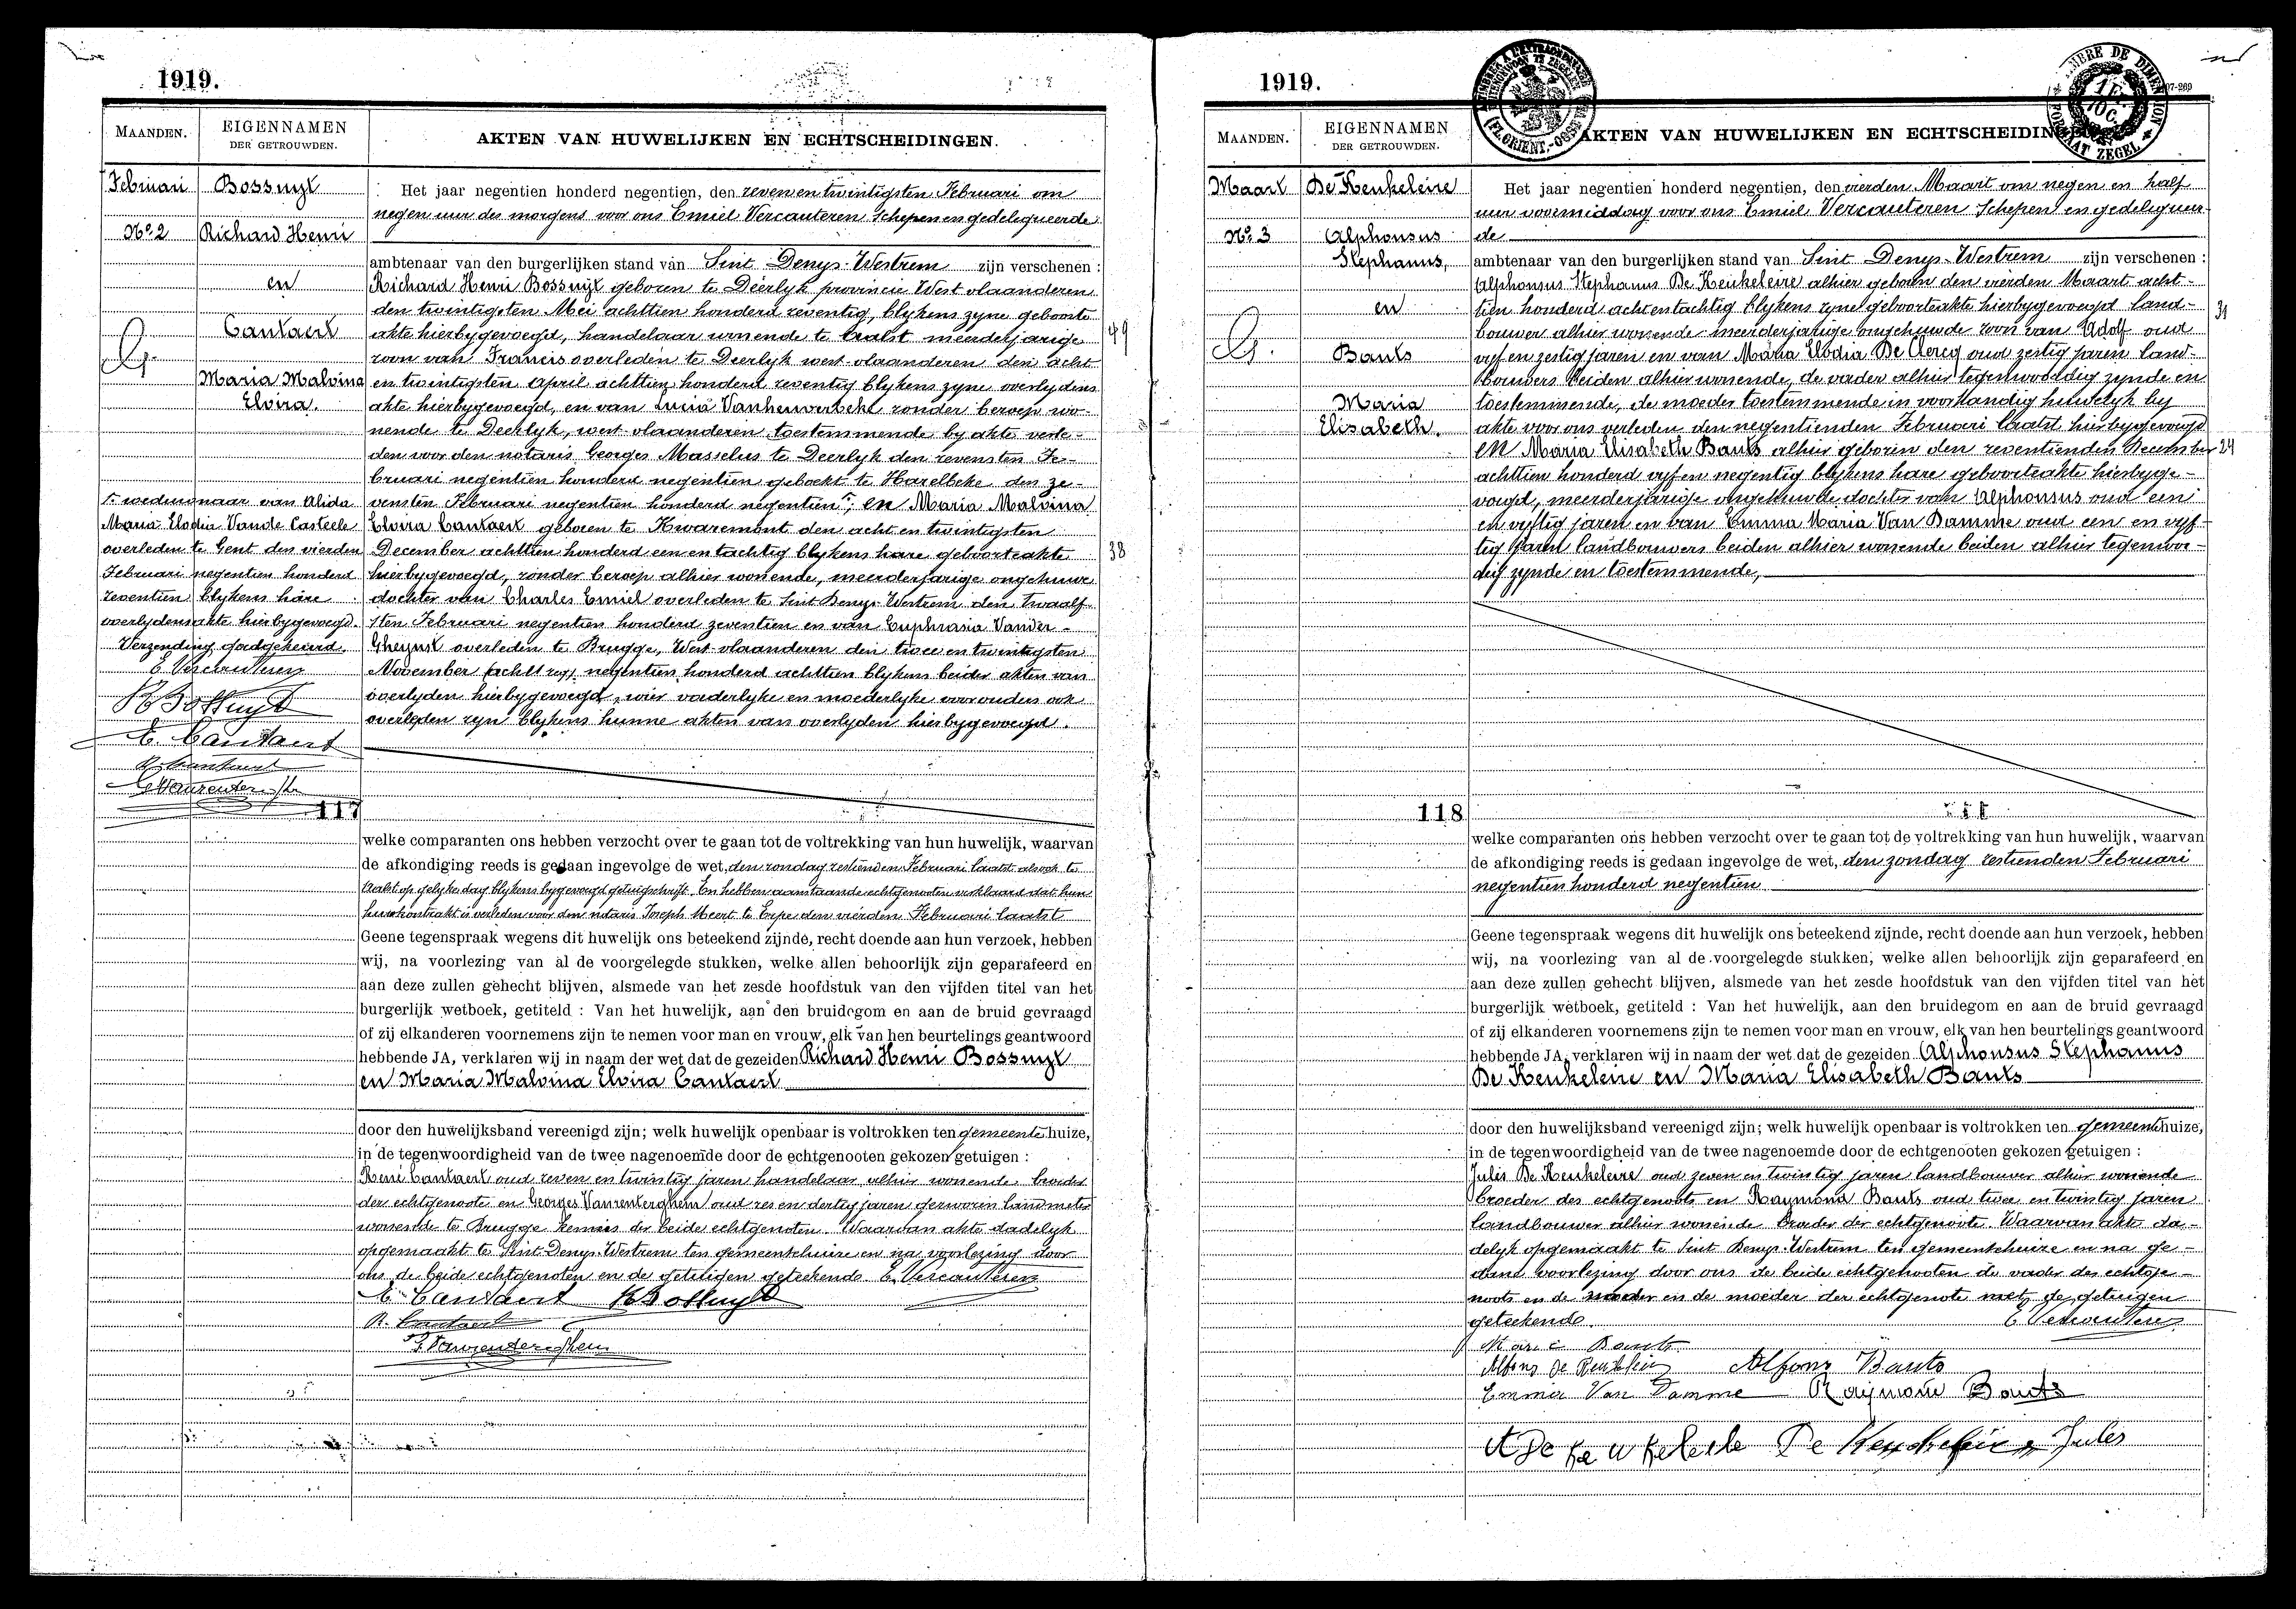 1919.
MAANDEN.
EIGENNAMEN
DER GETROUWDEN.
AKTEN VAN HUWELIJKEN EN ECHTSCHEIDINGEN.
Februari
Bossuyt
No. 2
Richard Henri
en
Cantaert
Maria Malvina
Elvira.
Het jaar negentien honderd negentien, den zeven en twintigsten Februari om
negen uur des morgens voor ons Emiel Vercauteren Schepen en gedelegueerde
ambtenaar van den burgerlijken stand van Sint Denys-Westrem zijn verschenen :
Richard Henri Bossuyt geboren te Deerlyk provincie West vlaanderen
den twintigsten Mei achttien honderd zeventig, blykens zyne geboorte
akte hierbygevoegd, handelaar wonende te Aalst meerderjarige
49
zoon van Francis overleden te Deerlyk west-vlaanderen den acht
en twintigsten april achttien honderd zeventig blykens zyne overlydens
akte hierbygevoegd, en van Lucia Vanhauwerbeke zonder beroep wo-
nende te Deerlyk, west-vlaanderen toestemmende by akte verle-
den voor den notaris Georges Masselus te Deerlyk den zevensten Fe-
bruari negentien honderd negentien geboekt te Harelbeke den ze-
vensten Februari negentien honderd negentien; en Maria Malvina
Elvira Cantaert geboren te Kwaremont den acht en twintigsten
December achttien honderd een en tachtig blykens hare geboorteakte
38
hierbygevoegd, zonder beroep alhier wonende, meerderjarige ongehuwde
dochter van Charles Emiel overleden te Sint Denys-Westrem den twaalf-
sten Februari negentien honderd zeventien en van Euphrasia Vander-
Gheynst overleden te Brugge, West-vlaanderen den twee en twintigsten
November negentien honderd achttien blykens beider akten van
overlyden hierbygevoegd, wier vaderlyke en moederlyke voorouders ook
overleden zyn blykens hunne akten van overlyden hierbygevoegd.
weduwnaar van Alida
Maria Elodia Vande Casteele
overleden te Gent den vierden
Februari negentien honderd
zeventien blykens hare
overlydensakte hierbygevoegd.
Verzending goedgekeurd.
E. Vercauteren
R Bossuyt
E. Cantaert
R. Cantaert
117
welke comparanten ons hebben verzocht over te gaan tot de voltrekking van hun huwelijk, waarvan
de afkondiging reeds is gedaan ingevolge de wet, den zondag zestienden Februari laatst alsook te
Aalst op gelyken dag blykens bygevoegd getuigschrift. En hebben aanstaande echtgenoten verklaard dat hun
huwkontrakt is verleden voor den notaris Joseph Meert te Erpe den vierden Februari laatst
Geene tegenspraak wegens dit huwelijk ons beteekend zijnde, recht doende aan hun verzoek, hebben
wij, na voorlezing van al de voorgelegde stukken, welke allen behoorlijk zijn geparafeerd en
aan deze zullen gehecht blijven, alsmede van het zesde hoofdstuk van den vijfden titel van het
burgerlijk wetboek, getiteld : Van het huwelijk, aan den bruidegom en aan de bruid gevraagd
of zij elkanderen voornemens zijn te nemen voor man en vrouw, elk van hen beurtelings geantwoord
hebbende JA, verklaren wij in naam der wet dat de gezeiden Richard Henri Bossuyt
en Maria Malvina Elvira Cantaert
door den huwelijksband vereenigd zijn; welk huwelijk openbaar is voltrokken ten gemeentehuize,
in de tegenwoordigheid van de twee nagenoemde door de echtgenooten gekozen getuigen :
René Cantaert oud zeven en twintig jaren handelaar alhier wonende broeder
der echtgenoote en Georges Vanrenterghem oud zes en dertig jaren gezworen landmeter
wonende te Brugge kennis der beide echtgenoten. Waarvan akte dadelyk
opgemaakt te Sint Denys-Westrem ten gemeentehuize en na voorlezing door
ons de beide echtgenoten en de getuigen geteekend. E. Vercauteren
E. Cantaert R Bossuyt
R. Cantaert
G. Vanrenterghem
1919.
MAANDEN.
EIGENNAMEN
DER GETROUWDEN.
AKTEN VAN HUWELIJKEN EN ECHTSCHEIDINGEN.
Maart
De Keukeleire
No. 3
Alphonsus
Stephanus,
en
Bauts
Maria
Elisabeth.
Het jaar negentien honderd negentien, den vierden Maart om negen en half
uur voormiddag voor ons Emiel Vercauteren Schepen en gedelegueer-
de
ambtenaar van den burgerlijken stand van Sint Denys-Westrem zijn verschenen :
Alphonsus Stephanus De Keukeleire alhier geboren den vierden Maart acht-
tien honderd acht en tachtig blykens zyne geboorteakte hierbygevoegd land-
31
bouwer alhier wonende meerderjarige ongehuwde zoon van Adolf oud
vyf en zestig jaren en van Maria Elodia De Clercq oud zestig jaren land-
bouwers beiden alhier wonende, de vader alhier tegenwoordig zynde en
toestemmende, de moeder toestemmende in voorhandig huwelyk by
akte voor ons verleden den negentienden Februari laatst hierbygevoegd
en Maria Elisabeth Bauts alhier geboren den zeventienden December
24
achttien honderd vyf en negentig blykens hare geboorteakte hierbyge-
voegd, meerderjarige ongehuwde dochter van Alphonsus oud een
en vyftig jaren en van Emma Maria Van Damme oud een en vyf-
tig jaren landbouwers beiden alhier wonende beiden alhier tegenwoor-
dig zynde en toestemmende,
118
welke comparanten ons hebben verzocht over te gaan tot de voltrekking van hun huwelijk, waarvan
de afkondiging reeds is gedaan ingevolge de wet, den zondag zestienden Februari
negentien honderd negentien
Geene tegenspraak wegens dit huwelijk ons beteekend zijnde, recht doende aan hun verzoek, hebben
wij, na voorlezing van al de voorgelegde stukken, welke allen behoorlijk zijn geparafeerd en
aan deze zullen gehecht blijven, alsmede van het zesde hoofdstuk van den vijfden titel van het
burgerlijk wetboek, getiteld : Van het huwelijk, aan den bruidegom en aan de bruid gevraagd
of zij elkanderen voornemens zijn te nemen voor man en vrouw, elk van hen beurtelings geantwoord
hebbende JA, verklaren wij in naam der wet dat de gezeiden Alphonsus Stephanus
De Keukeleire en Maria Elisabeth Bauts
door den huwelijksband vereenigd zijn; welk huwelijk openbaar is voltrokken ten gemeentehuize,
in de tegenwoordigheid van de twee nagenoemde door de echtgenooten gekozen getuigen :
Jules De Keukeleire oud zeven en twintig jaren landbouwer alhier wonende
broeder des echtgenoots en Raymond Bauts oud twee en twintig jaren
landbouwer alhier wonende broeder der echtgenoote Waarvan akte da-
delyk opgemaakt te Sint Denys-Westrem ten gemeentehuize en na ge-
dane voorlezing door ons de beide echtgenooten de vader des echtge-
noots en de vader en de moeder der echtgenote met de getuigen
geteekend. E. Vercauteren
Maria Bauts
Alfons De Keukeleire Alfons Bauts
Emma Van Damme Raymond Bauts
A De Keukeleire De Keukeleire Jules